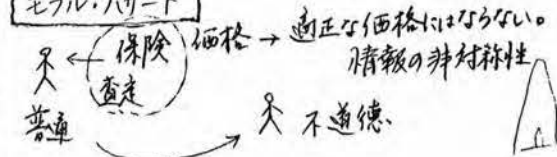 モラル・ハザード
保険 価格 → 適正な価格にはならない。
査定 情報の非対称性
普通 不道徳